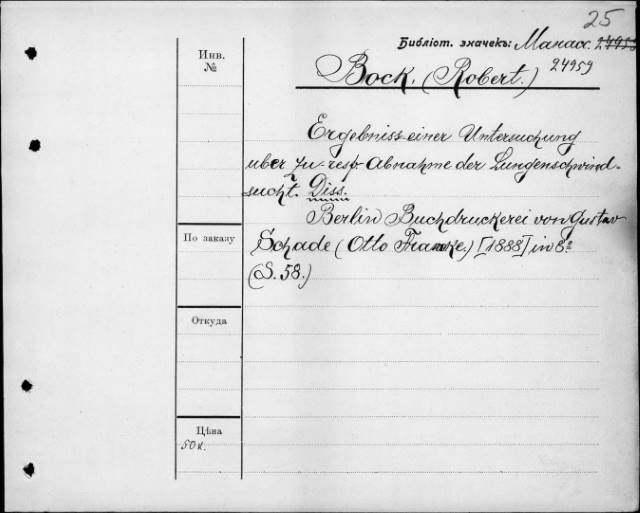 25
Библіот. значекъ: Манас. 24953
24959
Инв.
№
Bock, (Robert.)
Ergebniss einer Untersuchung
uber Zu- resp. Abnahme der Lungenschwind-
sucht. Diss.
Berlin Buchdruckerei von Gustav
По заказу
Schade (Otto Francke.) [1888] in 8º
(S. 58.)
Откуда
Цѣна
50 к.